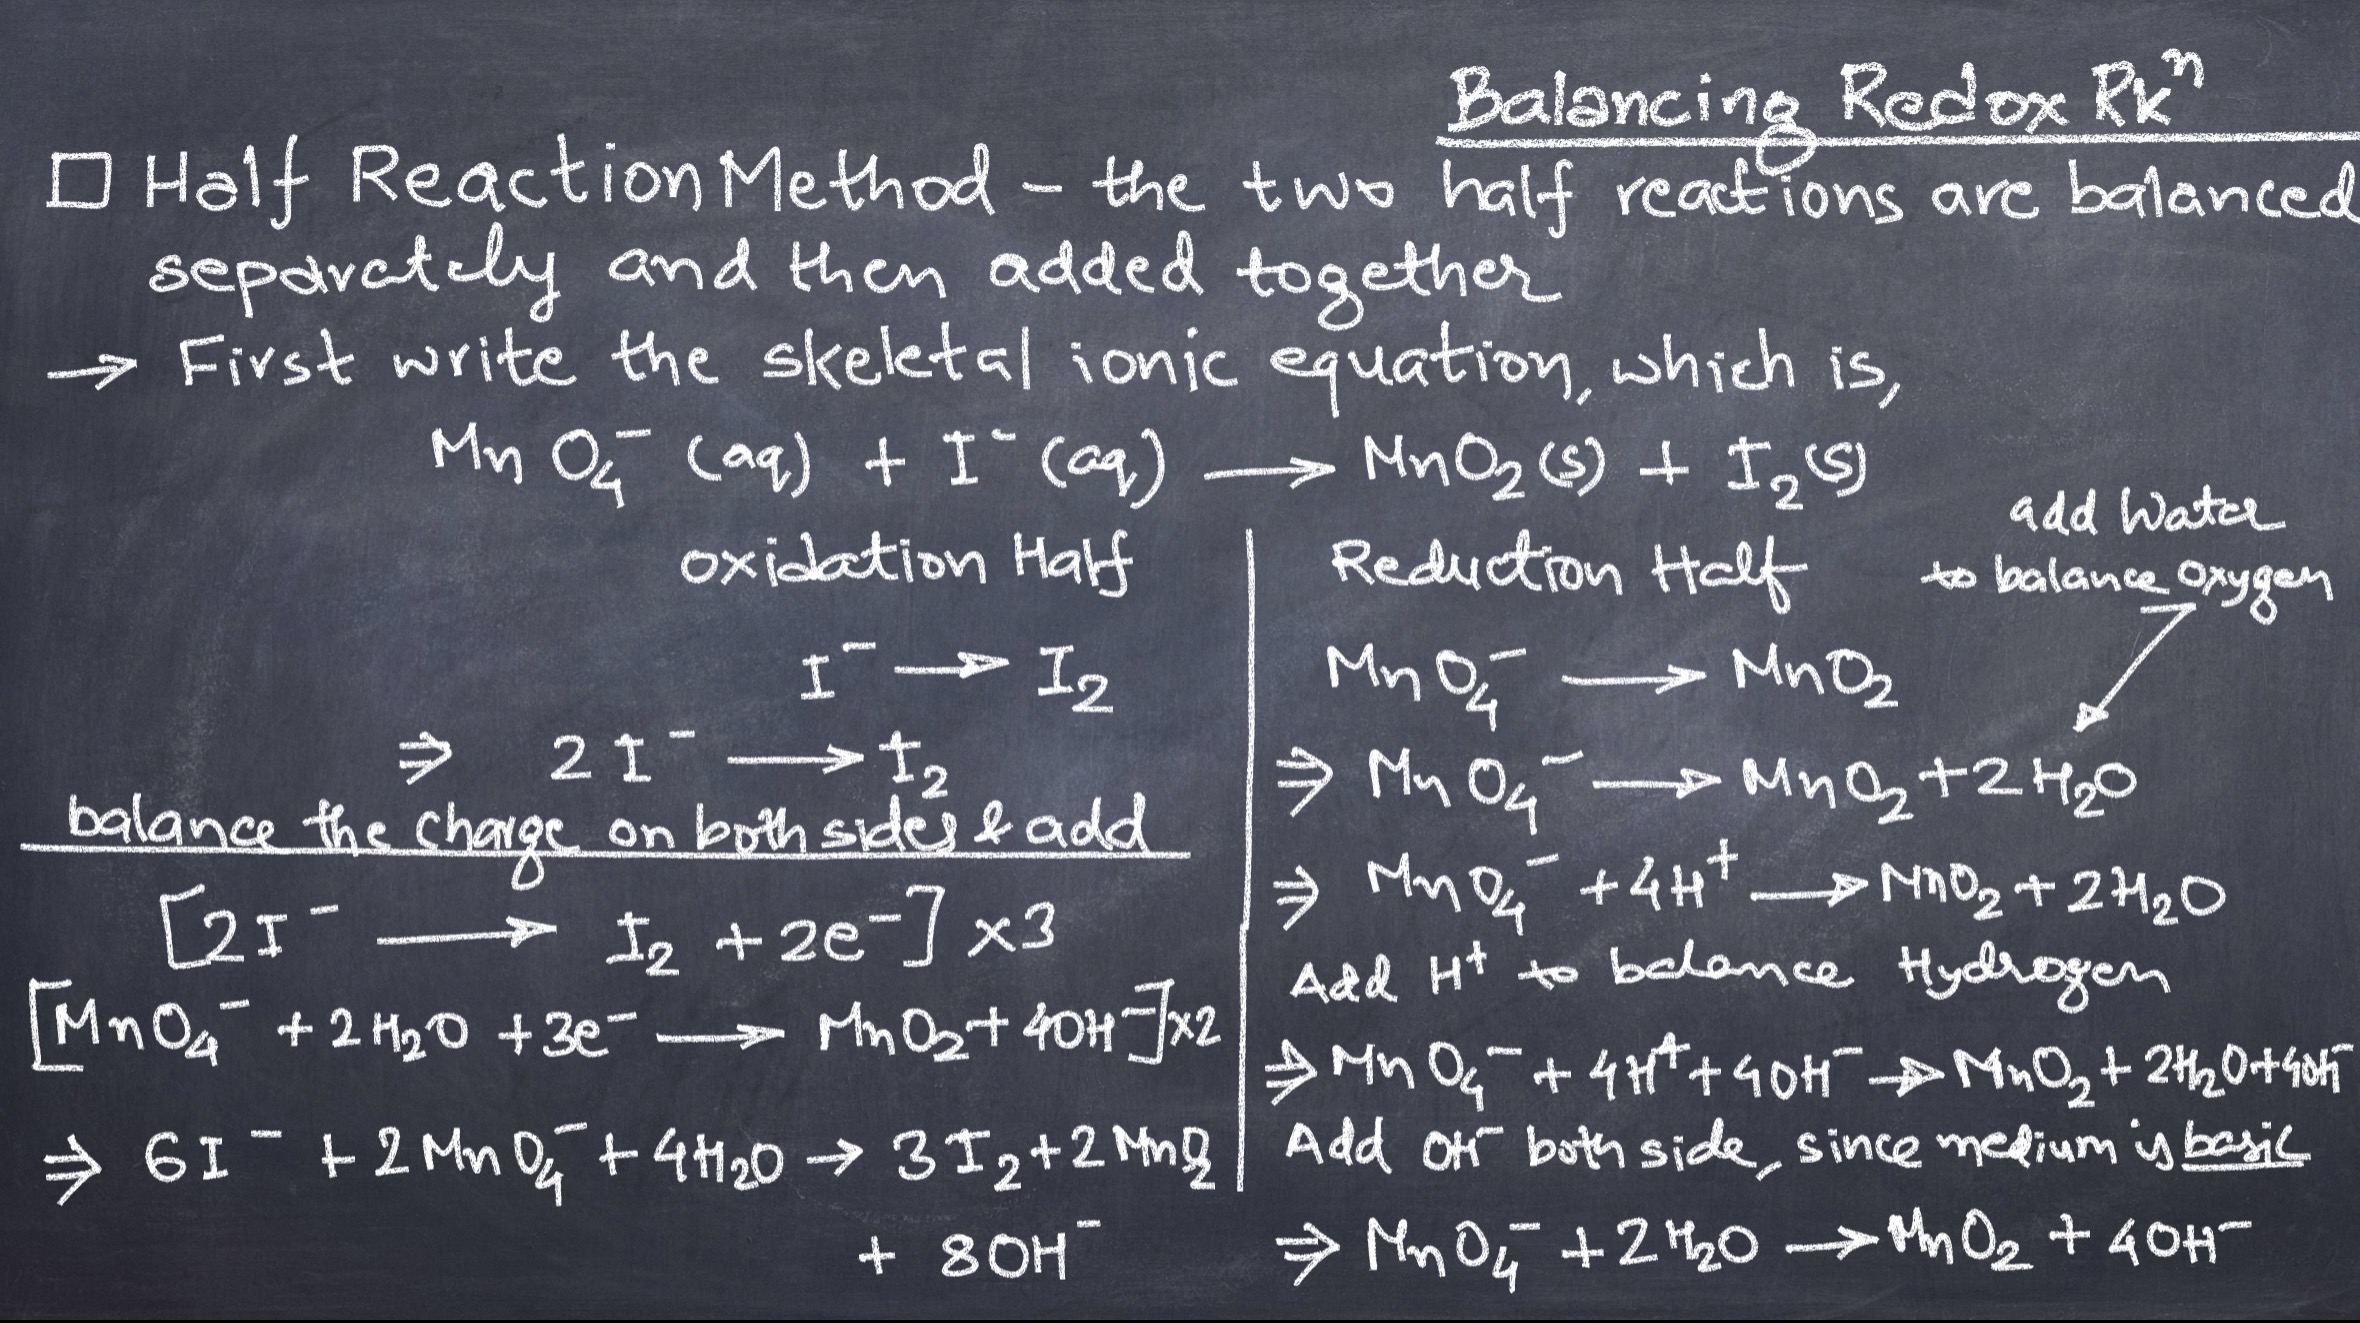 Balancing Redox Rxⁿ
□ Half Reaction Method - the two half reactions are balanced
separately and then added together
→ First write the skeletal ionic equation, which is,
MnO₄⁻ (aq) + I⁻ (aq) → MnO₂(s) + I₂(s)
oxidation Half
I⁻ → I₂
⇒ 2I⁻ → I₂
balance the charge on both sides & add
[2I⁻ → I₂ + 2e⁻] ×3
[MnO₄⁻ + 2H₂O + 3e⁻ → MnO₂ + 4OH⁻]×2
⇒ 6I⁻ + 2MnO₄⁻ + 4H₂O → 3I₂ + 2MnO₂
+ 8OH⁻
Reduction Half
add Water
to balance oxygen
MnO₄⁻ → MnO₂
⇒ MnO₄⁻ → MnO₂ + 2H₂O
⇒ MnO₄⁻ + 4H⁺ → MnO₂ + 2H₂O
Add H⁺ to balance Hydrogen
⇒ MnO₄⁻ + 4H⁺ + 4OH⁻ → MnO₂ + 2H₂O + 4OH⁻
Add OH⁻ both side, since medium is basic
⇒ MnO₄⁻ + 2H₂O → MnO₂ + 4OH⁻